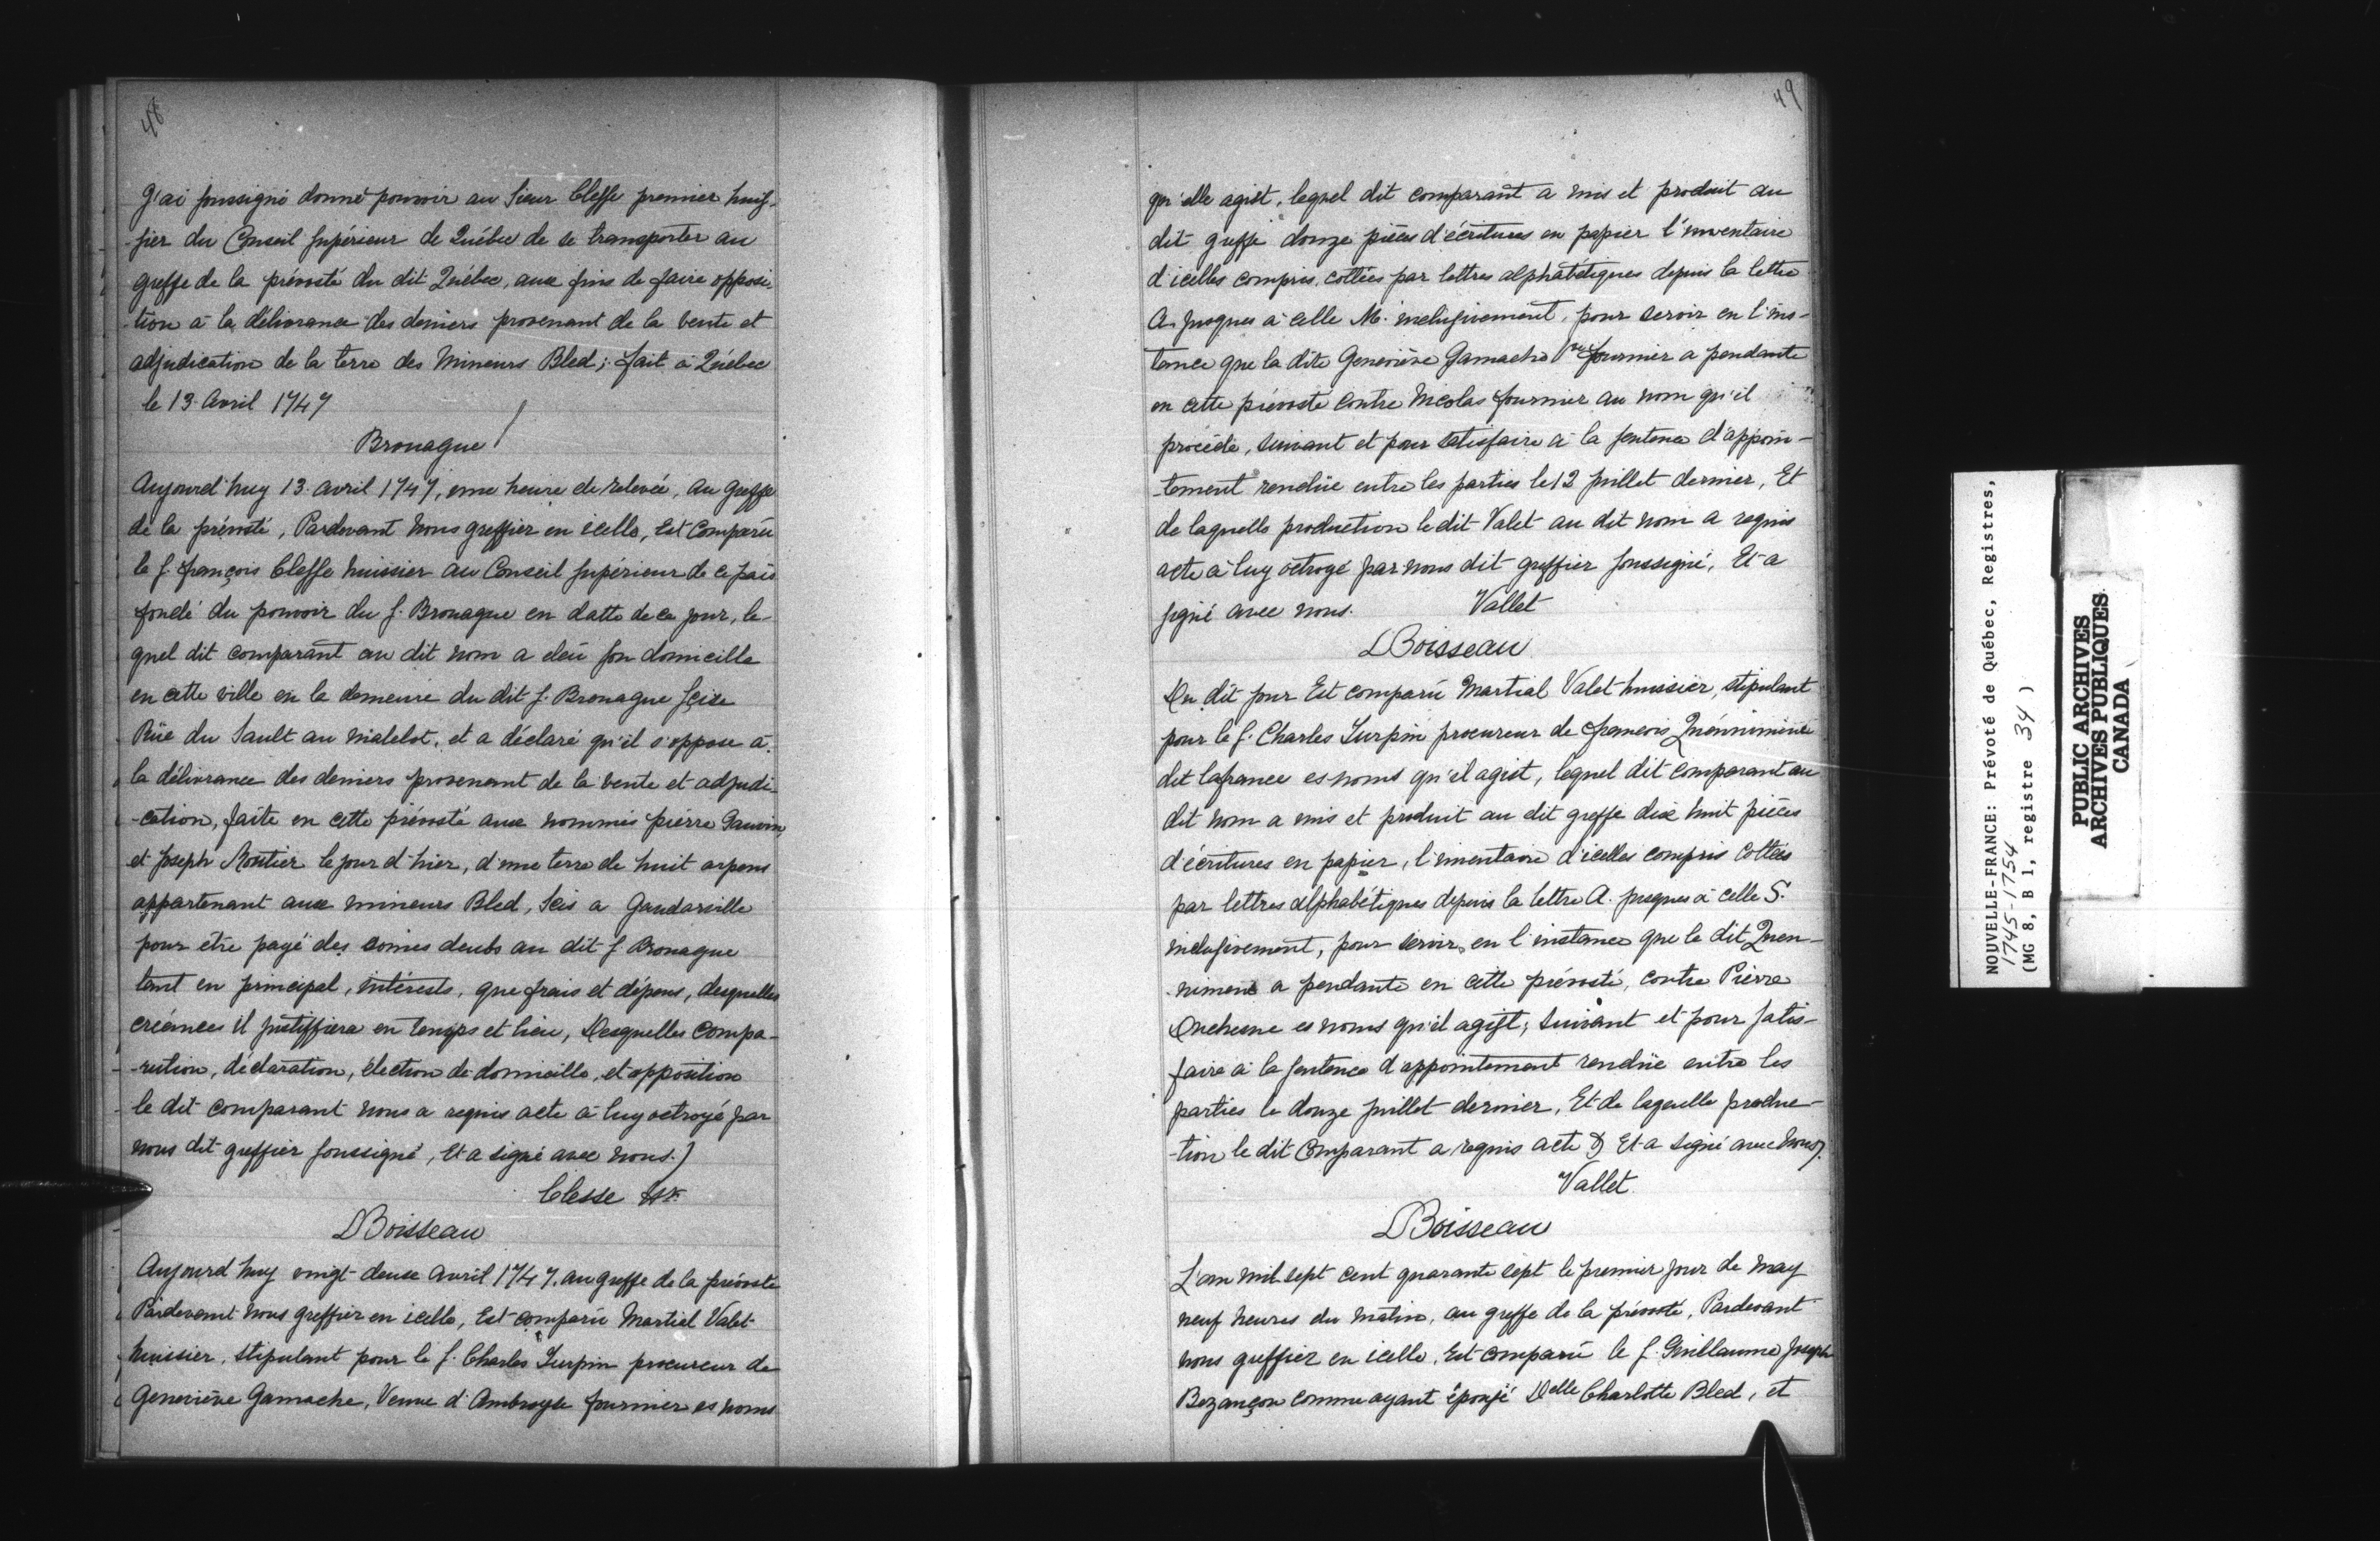 48
J'ai soussigné donné pouvoir au Sieur Clesse premier huis-
-sier du Conseil supérieur de Québec de se transporter au
greffe de la prévosté du dit Québec, aux fins de faire opposi-
-tion à la délivrance des deniers provenant de la vente et
adjudication de la terre des Mineurs Bled; fait à Québec
le 13 Avril 1747
Brouague
Aujourd'huy 13 avril 1747, une heure de relevée, Au Greffe
de la prévosté, Pardevant Nous greffier en icelle, Est Comparu
le s. françois Clesse huissier au Conseil supérieur de ce païs
fondé du pouvoir du s. Brouague en datte de ce jour, le-
quel dit comparant au dit nom a eleü son domicille
en cette ville en la demeure du dit s. Brouague scise
Rüe du Sault au matelot, et a déclaré qu'il s'oppose à
la délivrance des deniers provenant de la vente et adjudi-
-cation, faite en cette prévosté aux nommés pierre Gauvin
et Joseph Routier le jour d'hier, d'une terre de huit arpens
appartenant aux mineurs Bled, Scis a Gaudarville
pour être payé des somes deubs au dit s Brouague
tant en principal, intérests, que frais et dépens, desquelles
créances il justiffiera en temps et lieu, Desquelles compa-
-rution, déclaration, élection de domicille, et opposition
le dit comparant nous a requis acte à luy octroyé par
nous dit greffier soussigné, Et a signé avec nous.)
Clesse
DBoisseau
Aujourd'huy vingt deux avril 1747. au greffe de la prévosté
Pardevant nous greffier en icelle, Est comparü Martial Valet
huissier, stipulant pour le s. Charles Turpin procureur de
Geneviève Gamache, Veuve d'Ambroyse fournier es noms
49
qu'elle agist, lequel dit comparant a mis et produit au
dit greffe douze pièces d'écritures en papier l'inventaire
d'icelles compris, cottées par lettres alphabétiques depuis la lettre
A. jusques à celle M. inclusivement, pour servir en l'ins-
tance que la dite Geneviève Gamache Ve fournier a pendante
en cette prévosté contre Nicolas fournier au nom qu'il
procède, suivant et pour satisfaire à la sentence d'appoin-
-tement rendüe entre les parties le 12 juillet dernier, Et
de laquelle production le dit Valet au dit nom a requis
acte à luy octroyé par nous dit greffier soussigné, Et a
signé avec nous. Vallet
DBoisseau
Du dit jour Est comparü Martial Valet huissier, stipulant
pour le s. Charles Turpin procureur de francois Quénnimine
dit lafrance es noms qu'il agist, lequel dit comparant au
dit nom a mis et produit au dit greffe dix huit pièces
d'écritures en papier, l'inventaire d'icelles compris Cottées
par lettres alphabétiques depuis la lettre A. jusques à celle S.
inclusivement, pour servir en l'instance que le dit Quen-
-nimene a pendante en cette prévosté, contre Pierre
Duchesne es noms qu'il agist, suivant et pour satis-
faire à la sentence d'appointement rendüe entre les
parties le douze juillet dernier, Et de laquelle produc-
-tion le dit Comparant a requis acte & Et a signé avec nous).
Vallet.
DBoisseau
L'an mil sept cent quarante sept le premier jour de may
neuf heures du matin, au greffe de la prévosté, Pardevant
nous greffier en icelle, Est comparü le s. Guillaume Joseph
Bezançon comme ayant épousé Delle Charlotte Bled, et
NOUVELLE-FRANCE: Prévoté de Québec, Registres,
1745-1754
(MG 8, B 1, registre 34 )
PUBLIC ARCHIVES
ARCHIVES PUBLIQUES
CANADA